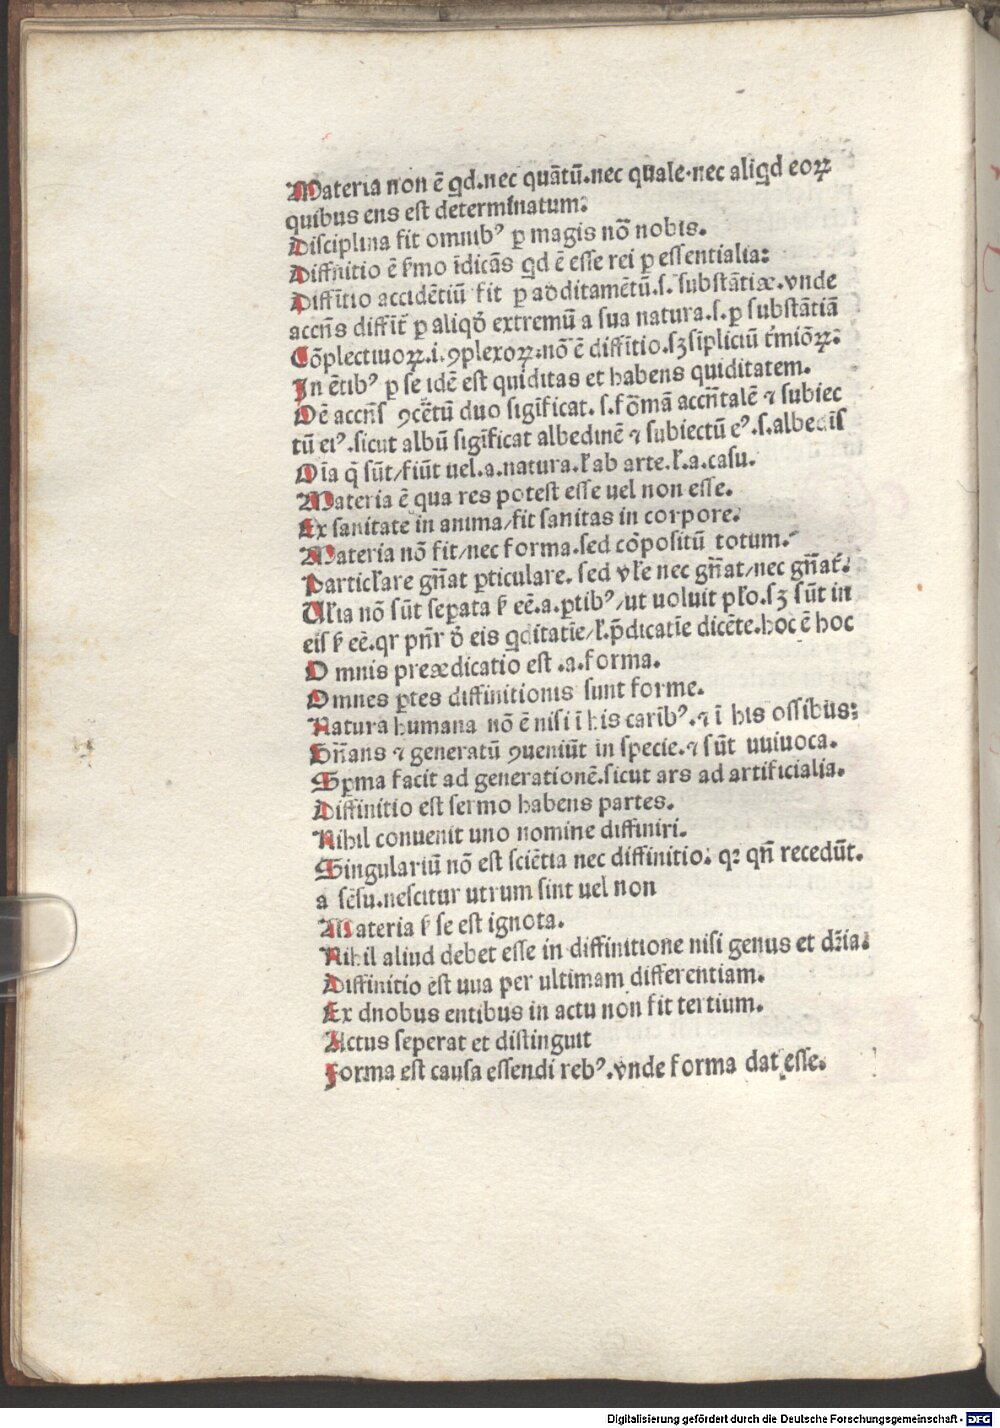 Materia non ē qd.nec quātū.nec quale.nec aliqd eoꝝ
quibus ens est determinatum:
Disciplina fit omnibꝰ ꝑ magis nō nobis.
Diffinitio ē ẜmo īdicās qd ē esse rei ꝑ essentialia:
Diffītio accidētiū fit ꝑ additamētū.s. substātiæ.vnde
accn̄s diffit᷑ ꝑ aliqḋ extremū a sua natura.s.ꝑ substātiā
Cōplectiuoꝝ.i.ꝯplexoꝝ:nō ē diffītio.sꝫ sīpliciū t̓mīoꝝ:
In ētibꝰ ꝑ se idē est quiditas et habens quiditatem.
Oē accn̄s ꝯcētū duo sigīficat. s.fōmā accn̄talē ⁊ subiec
tū eiꝰ.sicut albū sigīficat albedinē ⁊ subiectū eꝰ.s.albedīs
Oīa q̄ sūt/fiūt uel.a.natura.ł ab arte.ł.a.casu.
Materia ē qua res potest esse uel non esse.
Ex sanitate in anima/fit sanitas in corpore.
Materia nō fit/nec forma.sed cōpositū totum.
Particłare gn̄at ꝑticulare. sed vłe nec gn̄at/nec gn̄at᷑.
Vłia nō sūt seꝑata ẜ eē.a.ꝑtibꝰ/ut uoluit pło.sꝫ sūt in
eis ẜ eē.qr pn̄r ḋ eis qditatīe/ł.p̄dicatīe dicēte.hoc ē hoc
Omnis preædicatio est .a.forma.
Omnes ꝑtes diffinitionis sunt forme.
Natura humana nō ē nisi ī his carībꝰ.⁊ ī his ossibus:
Gn̄ans ⁊ generatū ꝯueniūt in specie.⁊ sūt uuiuoca.
Sꝑma facit ad generationē.sicut ars ad artificialia.
Diffinitio est sermo habens partes.
Nihil convenit uno nomine diffiniri.
Singulariū nō est sciētia nec diffinitio: qꝛ qn̄ recedūt.
a sēsu.nescitur utrum sint uel non
Materia ẜ se est ignota.
Nihil aliud debet esse in diffinitione nisi genus et dr̄ia:
Diffinitio est una per ultimam differentiam.
Ex dnobus entibus in actu non fit tertium.
Actus seperat et distinguit
Forma est causa essendi rebꝰ.vnde forma dat esse.
Digitalisierung gefördert durch die Deutsche Forschungsgemeinschaft - DFG